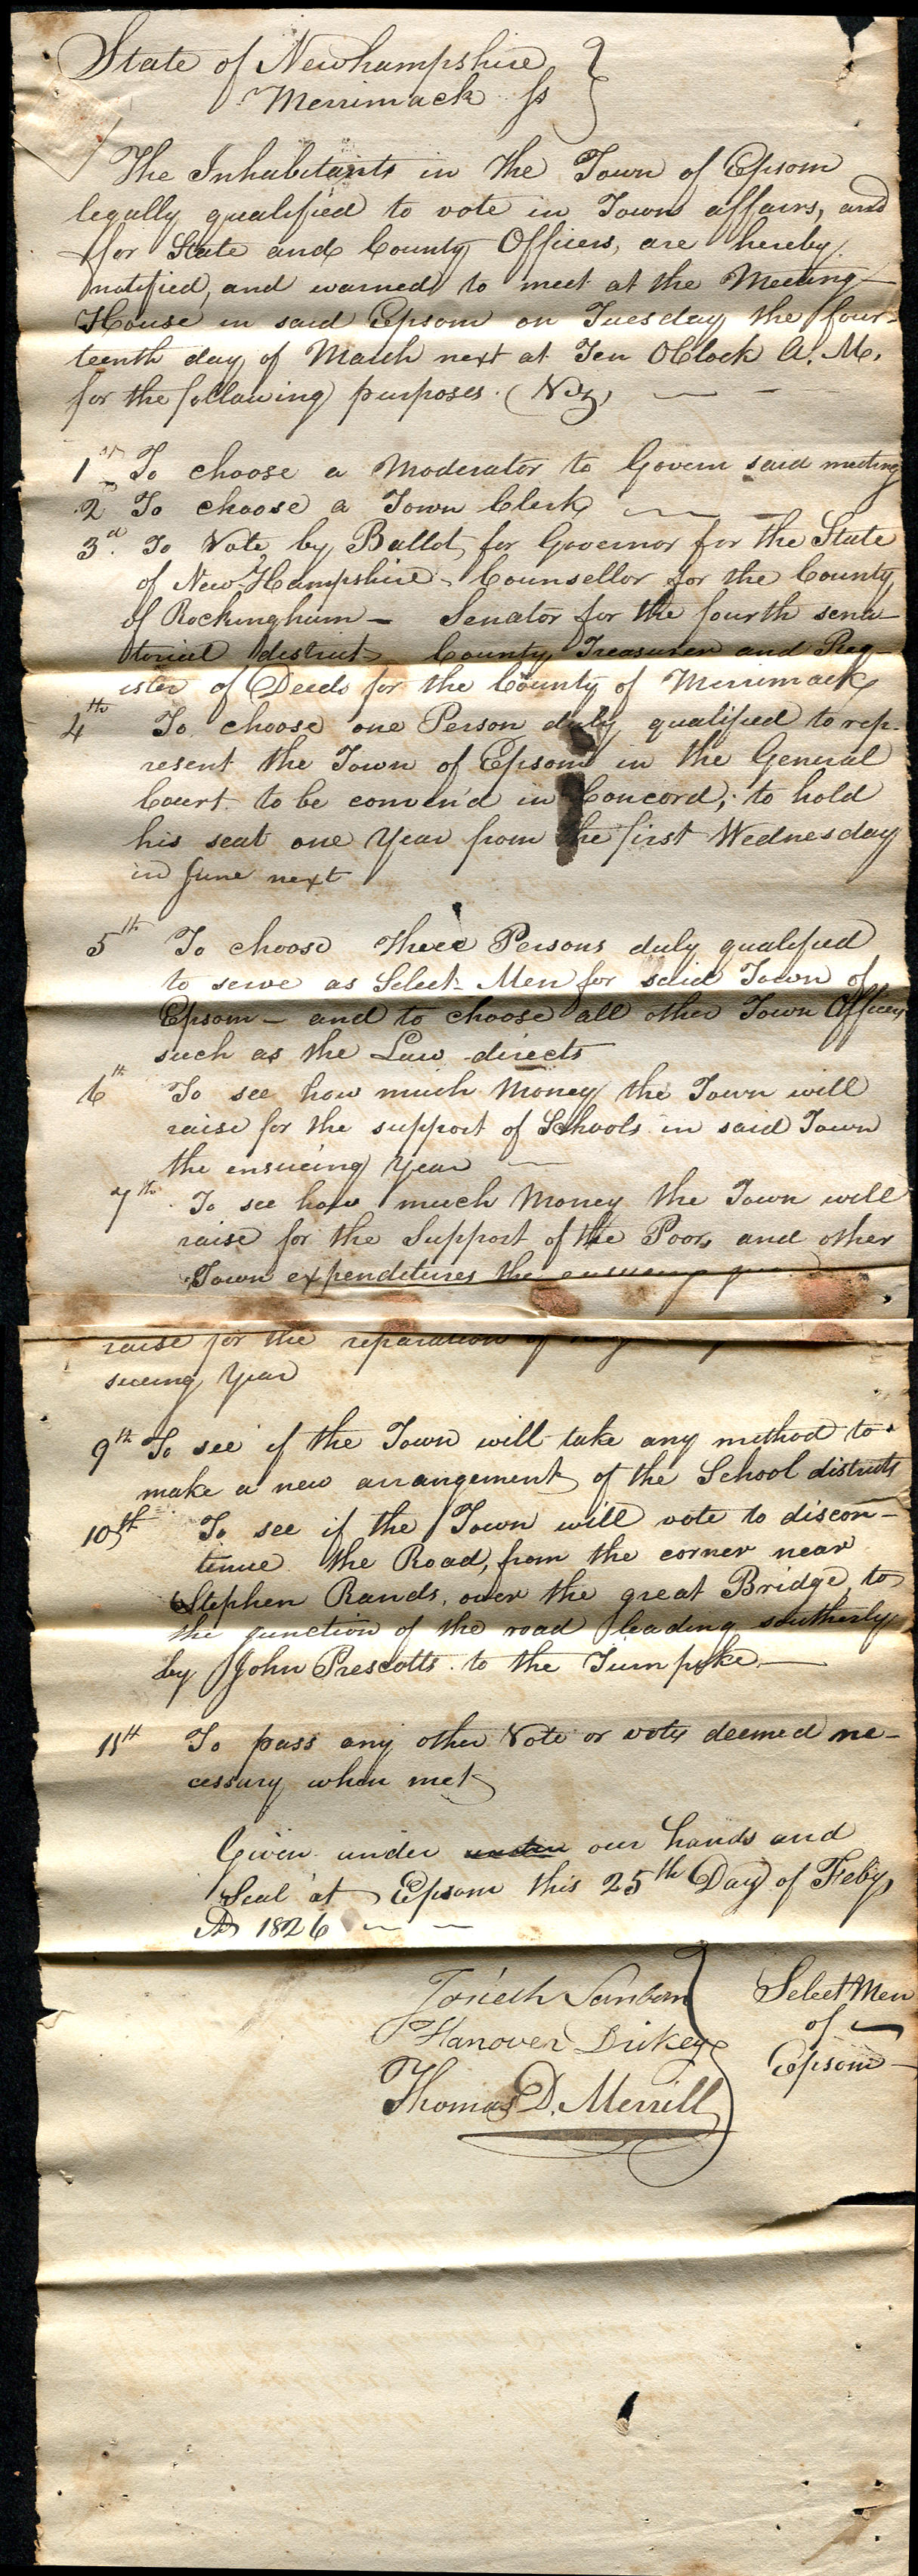 State of Newhampshire }
Merrimack Ss }
The Inhabitants in the Town of Epsom
legally qualified to vote in Town affairs, and
for State and County Officers, are hereby
notified, and warned to meet at the Meeting
House in said Epsom on Tuesday the four-
teenth day of March next at Ten OClock A. M.
for the following purposes. (Viz,
1st To choose a Moderator to Govern said meeting
2d To choose a Town Clerk
3d. To Vote by Ballot for Governor for the State
of New Hampshire - Counsellor for the County
of Rockingham - Senator for the fourth sena-
torial district, County Treasurer and Reg-
ister of Deeds for the County of Merrimack
4th To choose one Person duly qualified to rep-
resent the Town of Epsom in the General
Court to be conven'd in Concord; to hold
his seat one Year from the first Wednesday
in June next
5th To choose three Persons duly qualified
to serve as Select-Men for said Town of
Epsom - and to choose all other Town Officers
such as the Law directs
6th To see how much Money the Town will
raise for the support of Schools in said Town
the ensueing Year
7th To see how much Money the Town will
raise for the Support of the Poor, and other
Town expenditures the ensueing year
raise for the reparation of
sueing Year
9th To see if the Town will take any method to
make a new arrangement of the School districts
10th To see if the Town will vote to discon-
tinue the Road, from the corner near
Stephen Rands, over the great Bridge, to
the junction of the road leading southerly
by John Prescotts to the Turnpike
11th To pass any other Vote or votes deemed ne-
cessary when met
Given under under our hands and
Seal at Epsom this 25th Day of Feby
AD 1826
Josiah Sanborn } Select Men
Hanover Dickey } of
Thomas D. Merrill } Epsom